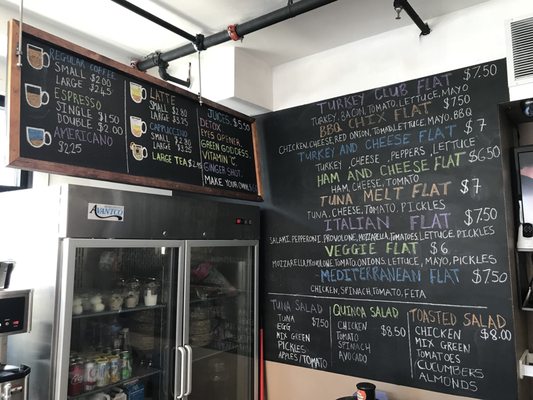 REGULAR COFFEE
SMALL $2.00
LARGE $2.45
ESPRESSO
SINGLE $1.50
DOUBLE $2.00
AMERICANO
$2.25
LATTE
SMALL
LARGE
CAPPUCCINO
SMALL
LARGE
LARGE TEA
JUICES $5.50
DETOX
EYES OPENER
GREEN GODDESS
VITAMIN "C"
GINGER SHOT
MAKE YOUR OWN
AVANTCO
TURKEY CLUB FLAT $7.50
TURKEY, BACON, TOMATO, LETTUCE, MAYO
BBQ CHIX FLAT $7.50
CHICKEN, CHEESE, RED ONION, TOMATO, LETTUCE, MAYO, BBQ
TURKEY AND CHEESE FLAT $7
TURKEY, CHEESE, PEPPERS, LETTUCE
HAM AND CHEESE FLAT $6.50
HAM, CHEESE, TOMATO
TUNA MELT FLAT $7
TUNA, CHEESE, TOMATO, PICKLES
ITALIAN FLAT $7.50
SALAMI, PEPPERONI, PROVOLONE, MOZZARELLA, TOMATOES, LETTUCE, PICKLES
VEGGIE FLAT $6
MOZZARELLA, PROVOLONE, TOMATO, ONIONS, LETTUCE, MAYO, PICKLES
MEDITERRANEAN FLAT $7.50
CHICKEN, SPINACH, TOMATO, FETA
TUNA SALAD
TUNA $7.50
EGG
MIX GREEN
PICKLES
APPLES/TOMATO
QUINOA SALAD
CHICKEN $8.50
TOMATO
SPINACH
AVOCADO
TOASTED SALAD
CHICKEN $8.00
MIX GREEN
TOMATOES
CUCUMBERS
ALMONDS